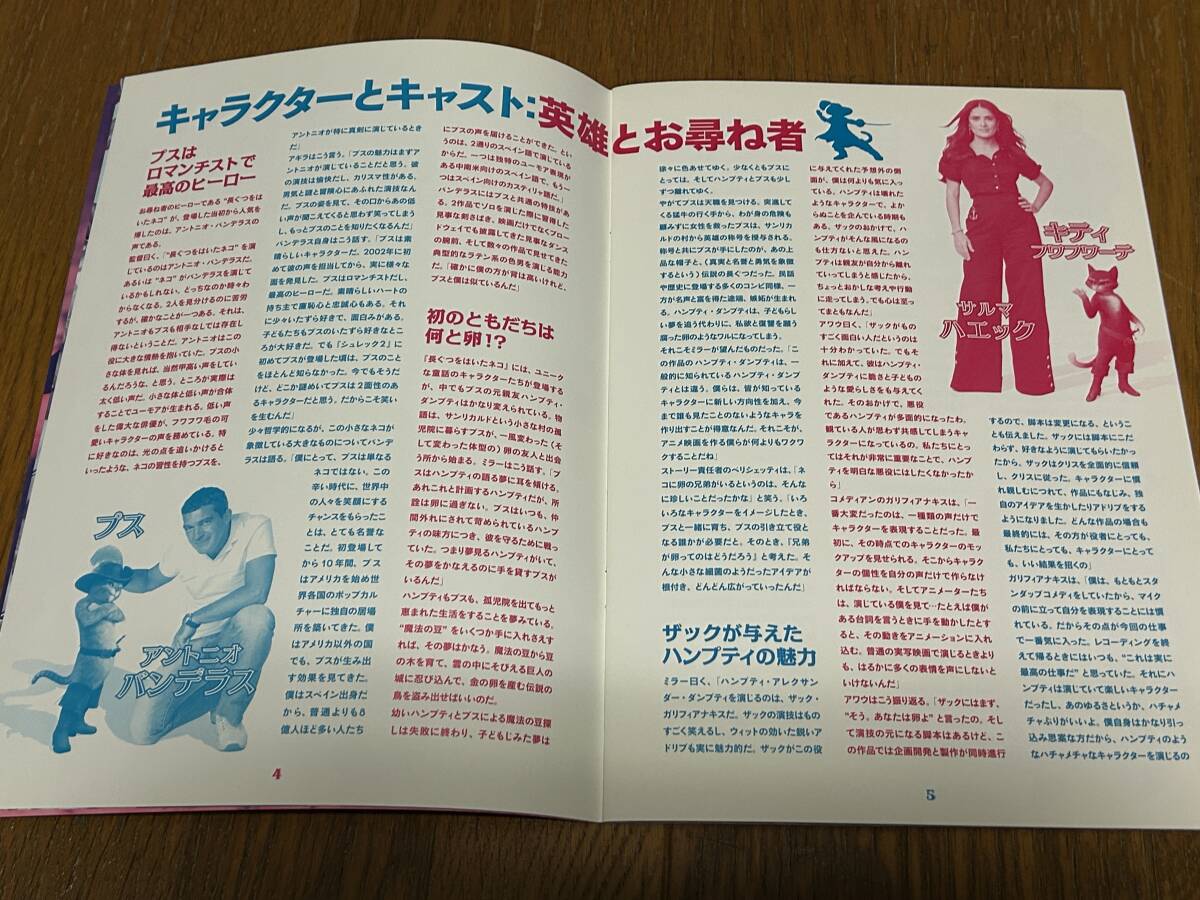 キャラクターとキャスト:英雄とお尋ね者
プスは
ロマンチストで
最高のヒーロー
お尋ね者のヒーローである“長ぐつをは
いたネコ”が、登場した当初から人気を
博したのは、アントニオ・バンデラスの
声である。
監督曰く、「“長ぐつをはいたネコ”を演
じているのはアントニオ・バンデラスだ。
あるいは“ネコ”がバンデラスを演じて
いるかもしれない、どっちなのか時々わ
からなくなる。2人を見分けるのに苦労
するが、確かなことが一つある。それは、
アントニオもプスも相手なしでは存在し
得ないということだ。アントニオはこの
役に大きな情熱を抱いていた。プスの小
さな体を見れば、当然甲高い声をしてい
るんだろうな、と思う。ところが実際は
太く低い声だ。小さな体と低い声が合体
することでユーモアが生まれる。低い声
をした偉大な俳優が、フワフワ毛の可
愛いキャラクターの声を務めている。特
に好きなのは、光の点を追いかけると
いったような、ネコの習性を持つプスを、
アントニオが特に真剣に演じているとき
だ」
アキラはこう言う。「プスの魅力はまずア
ントニオが演じていることだと思う。彼
の演技は愉快だし、カリスマ性がある。
男気と謎と冒険心にあふれた演技なん
だ。プスの姿を見て、その口からあの低
い声が聞こえてくると思わず笑ってしまう
し、もっとプスのことを知りたくなるんだ」
バンデラス自身はこう話す。「プスは素
晴らしいキャラクターだ。2002年に初
めて彼の声を担当してから、実に様々な
面を発見した。プスはロマンチストだし、
最高のヒーローだ。素晴らしいハートの
持ち主で廉恥心と忠誠心もある。それ
に少々いたずら好きで、面白みがある。
子どもたちもプスのいたずら好きなとこ
ろが大好きだ。でも『シュレック2』に
初めてプスが登場した頃は、プスのこと
をほとんど知らなかった。今でもそうだ
けど、どこか謎めいてプスは2面性のあ
るキャラクターだと思う。だからこそ笑い
を生むんだ」
少々哲学的になるが、この小さなネコが
象徴している大きなものについてバンデ
ラスは語る。「僕にとって、プスは単なる
ネコではない。この
辛い時代に、世界中
の人々を笑顔にする
チャンスをもらったこ
とは、とても名誉な
ことだ。初登場して
から10年間、プス
はアメリカを始め世
界各国のポップカル
チャーに独自の居場
所を築いてきた。僕
はアメリカ以外の国
でも、プスが生み出
す効果を見てきた。
僕はスペイン出身だ
から、普通よりも8
億人ほど多い人たち
にプスの声を届けることができた。とい
うのは、2通りのスペイン語で演じている
からだ。一つは独特のユーモア表現が
ある中南米向けのスペイン語で、もう一
つはスペイン向けのカスティリャ語だ。」
バンデラスにはプスと共通の特技があ
る。2作品でゾロを演じた際に習得した
見事な剣さばき、映画だけでなくブロー
ドウェイでも披露してきた見事なダンス
の腕前、そして数々の作品で見せてきた
典型的なラテン系の色男を演じる能力
だ。「確かに僕の方が背は高いけれど、
プスと僕は似ているんだ」
初のともだちは
何と卵!?
「長ぐつをはいたネコ」には、ユニーク
な童話のキャラクターたちが登場する
が、中でもプスの元親友ハンプティ・
ダンプティはかなり変えられている。物
語は、サンリカルドという小さな村の孤
児院に暮らすプスが、一風変わった（そ
して変わった体型の）卵の友人と出会
う所から始まる。ミラーはこう話す。「プ
スはハンプティの語る夢に耳を傾ける。
あれこれと計画するハンプティだが、所
詮は卵に過ぎない。プスはいつも、仲
間外れにされて苛められているハンプ
ティの味方につき、彼を守るために戦っ
ていた。つまり夢見るハンプティがいて、
その夢をかなえるのに手を貸すプスが
いるんだ」
ハンプティもプスも、孤児院を出てもっと
恵まれた生活をすることを夢みている。
“魔法の豆”をいくつか手に入れさえす
れば、その夢はかなう。魔法の豆から豆
の木を育て、雲の中にそびえる巨人の
城に忍び込んで、金の卵を産む伝説の
鳥を盗み出せばいいのだ。
幼いハンプティとプスによる魔法の豆探
しは失敗に終わり、子どもじみた夢は
プス
アントニオ
バンデラス
4
徐々に色あせてゆく。少なくともプスに
とっては。そしてハンプティとプスも少し
ずつ離れてゆく。
やがてプスは天職を見つける。突進して
くる猛牛の行く手から、わが身の危険も
顧みずに女性を救ったプスは、サンリカ
ルドの村から英雄の称号を授与される。
称号と共にプスが手にしたのが、あの上
品な帽子と、（真実と名誉と勇気を象徴
するという）伝説の長ぐつだった。民話
や歴史に登場する多くのコンビ同様、一
方が名声と富を得た途端、嫉妬が生まれ
る。ハンプティ・ダンプティは、子どもらし
い夢を追う代わりに、私欲と復讐を願う
腐った卵のようなワルになってしまう。
それこそミラーが望んだものだった。「こ
の作品のハンプティ・ダンプティは、一
般的に知られているハンプティ・ダンプ
ティとは違う。僕らは、皆が知っている
キャラクターに新しい方向性を加え、今
まで誰も見たことのないようなキャラを
作り出すことが得意なんだ。それこそが、
アニメ映画を作る僕らが何よりもワクワ
クすることだね」
ストーリー責任者のペリシェッティは、「ネ
コに卵の兄弟がいるというのは、そん
なに珍しいことだったかな」と笑う。「いろ
いろなキャラクターをイメージしたとき、
プスと一緒に育ち、プスの引き立て役と
なる誰かが必要だと。そのとき、「兄弟
が卵ってのはどうだろう」と考えた。そ
んな小さな細菌のようだったアイデアが
根付き、どんどん広がっていったんだ」
ザックが与えた
ハンプティの魅力
ミラー曰く、「ハンプティ・アレクサン
ダー・ダンプティを演じるのは、ザック・
ガリフィアナキスだ。ザックの演技はもの
すごく笑えるし、ウィットの効いた鋭いア
ドリブも実に魅力的だ。ザックがこの役
に与えてくれた予想外の側
面が、僕は何よりも気に入っ
ている。ハンプティは壊れた
ようなキャラクターで、よか
らぬことを企んでいる時期も
ある。ザックのおかげで、ハ
ンプティがそんな風になるの
も仕方ないと思えた。ハン
プティは親友が自分から離れ
ていってしまうと感じたから、
ちょっとおかしな考えや行動
に走ってしまう。でも心は至っ
てまともなんだ」
アワウ曰く、「ザックがもの
すごく面白い人だというのは
十分わかっていた。でもそ
れに加えて、彼はハンプティ・
ダンプティに脆さと子どもの
ような愛らしさをも与えてく
れた。そのおかげで、悪役
であるハンプティが多面的になったわ。
観ている人が思わず共感してしまうキャ
ラクターになっているの。私たちにとっ
てはそれが非常に重要なことで、ハンプ
ティを明白な悪役にはしたくなかったか
ら」
コメディアンのガリフィアナキスは、「一
番大変だったのは、一種類の声だけで
キャラクターを表現することだった。最
初に、その時点でのキャラクターのモッ
クアップを見せられる。そこからキャラク
ターの個性を自分の声だけで作らなけ
ればならない。そしてアニメーターたち
は、演じている僕を見て…たとえば僕が
ある台詞を言うときに手を動かしたとす
ると、その動きをアニメーションに入れ
込む。普通の実写映画で演じるときより
も、はるかに多くの表情を声にしないと
いけないんだ」
アワウはこう振り返る。「ザックにはまず、
“そう。あなたは卵よ”と言ったの。そし
て演技の元になる脚本はあるけど、こ
の作品では企画開発と製作が同時進行
するので、脚本は変更になる、というこ
とも伝えました。ザックには脚本にこだ
わらず、好きなように演じてもらいたかっ
たから、ザックはクリスを全面的に信頼
し、クリスに従った。キャラクターに慣
れ親しむにつれて、作品にもなじみ、独
自のアイデアを生かしたりアドリブをする
ようになりました。どんな作品の場合も
最終的には、その方が役者にとっても、
私たちにとっても、キャラクターにとって
も、いい結果を招くの」
ガリフィアナキスは、「僕は、もともとスタ
ンダップコメディをしていたから、マイク
の前に立って自分を表現することには慣
れている。だからその点が今回の仕事
で一番気に入った。レコーディングを終
えて帰るときにはいつも、“これは実に
最高の仕事だ”と思っていた。それにハ
ンプティは演じていて楽しいキャラクター
だったし、あのゆるさというか、ハチャメ
チャぶりがいいよ。僕自身はかなり引っ
込み思案な方だから、ハンプティのよう
なハチャメチャなキャラクターを演じるの
キティ
フワフワーテ
サルマ
ハエック
5